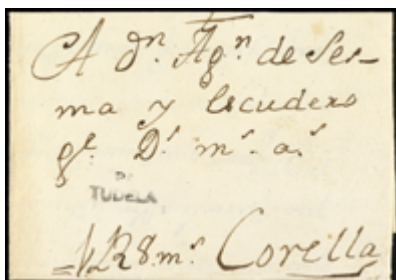 A Dn. Agn. de Ser-
ma y Escudero
ge. Ds. ms. as.
D.
TUDELA
128 ms. Corella